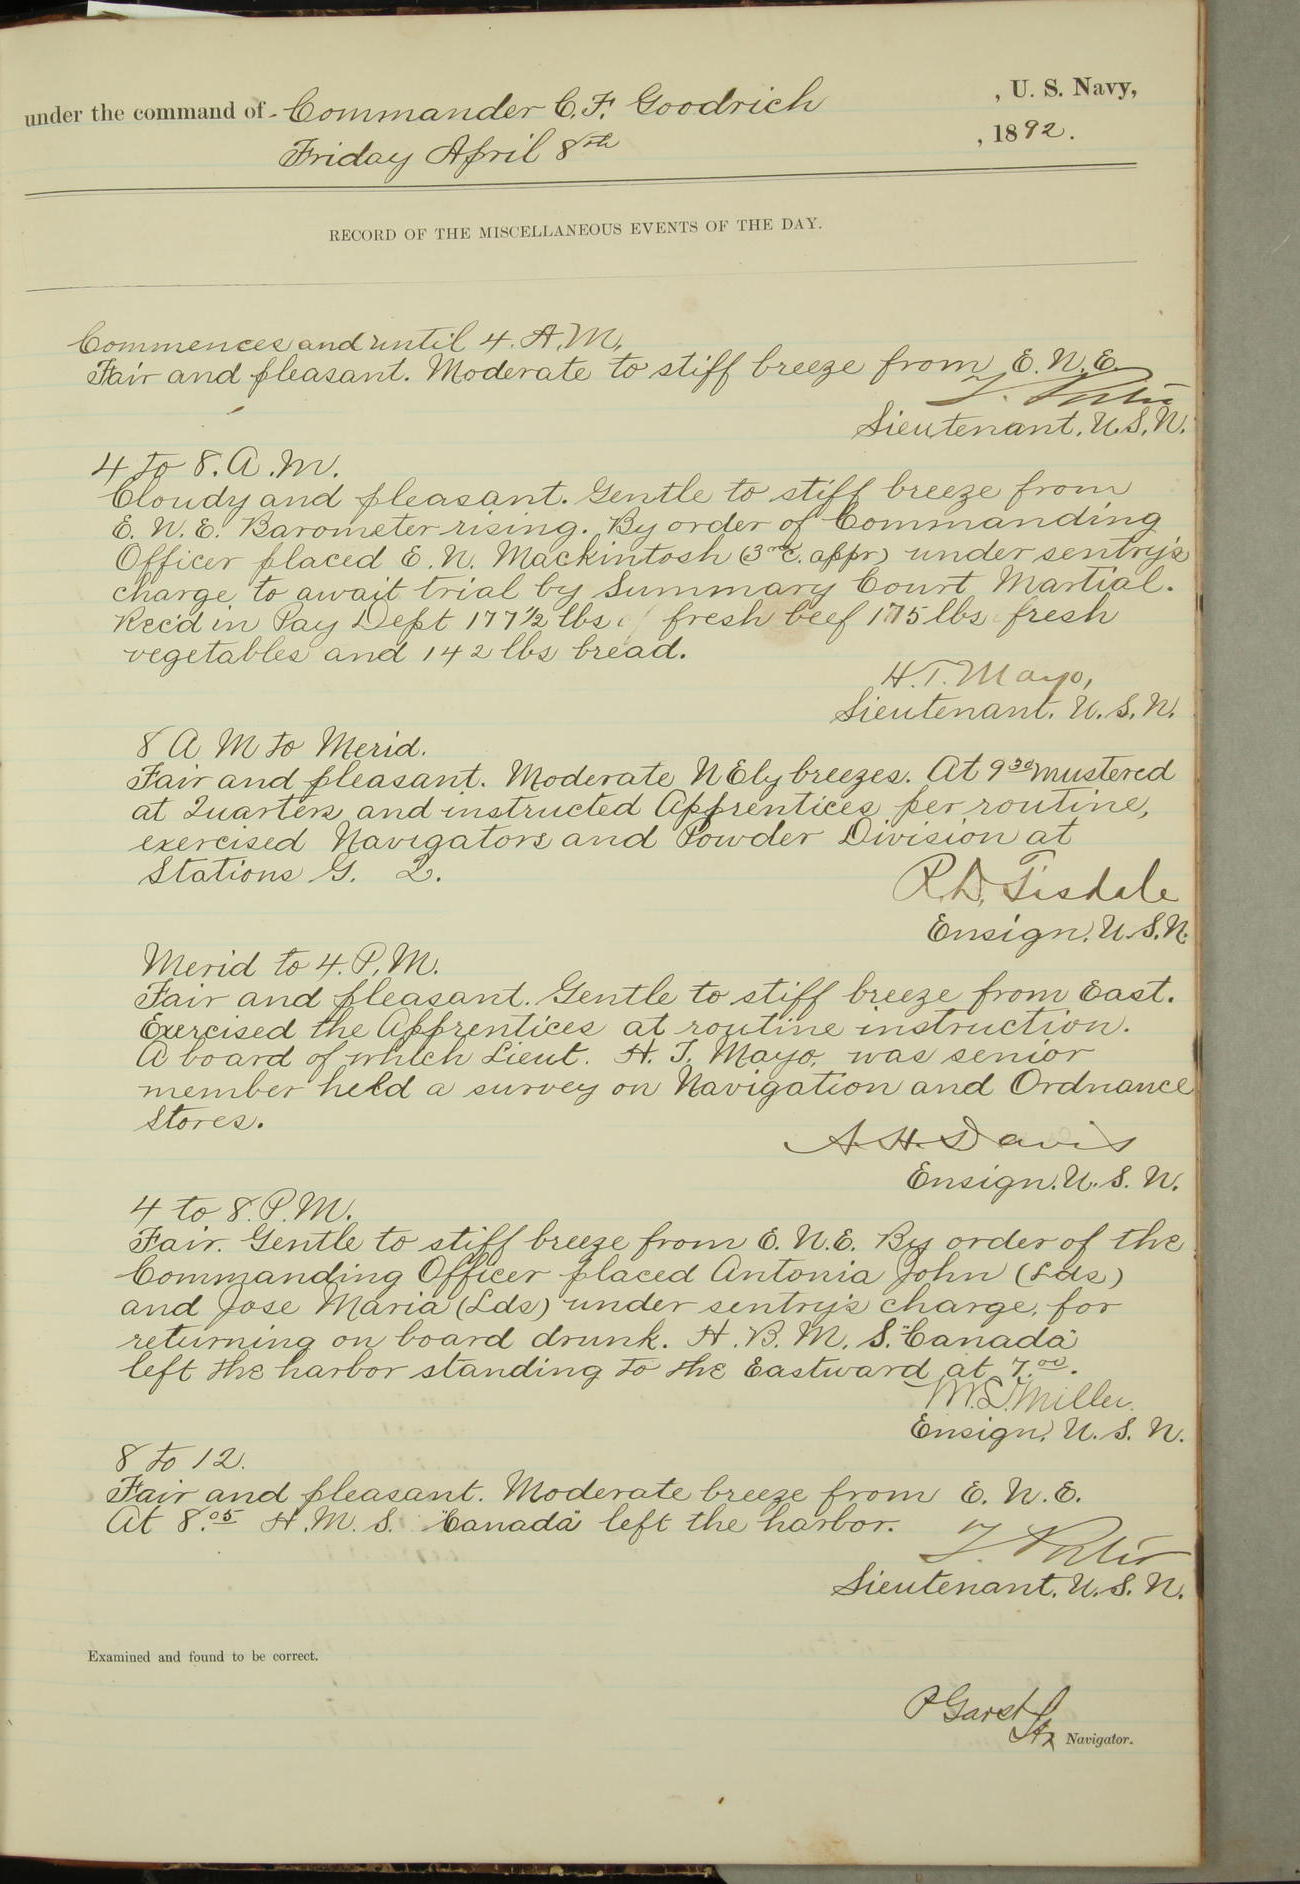 under the command of Commander C. F. Goodrich , U. S. Navy,
Friday April 8th , 1892.
RECORD OF THE MISCELLANEOUS EVENTS OF THE DAY.
Commences and until 4. A.M.
Fair and pleasant. Moderate to stiff breeze from E. N. E.
T. Porter
Lieutenant, U.S.N.
4 to 8. A.M.
Cloudy and pleasant. Gentle to stiff breeze from
E. N. E. Barometer rising. By order of Commanding
Officer placed E. N. Mackintosh (3rd c. appr) under sentry's
charge to await trial by Summary Court Martial.
Rec'd in Pay Dept 177½ lbs fresh beef 175 lbs fresh
vegetables and 142 lbs bread.
H. T. Mayo,
Lieutenant. U. S. N.
8 A M to Merid.
Fair and pleasant. Moderate N Ely breezes. At 9 30 mustered
at Quarters and instructed Apprentices per routine,
exercised Navigators and Powder Division at
Stations G. Q.
R. D. Tisdale
Ensign, U.S.N.
Merid to 4. P.M.
Fair and pleasant. Gentle to stiff breeze from East.
Exercised the Apprentices at routine instruction.
A board of which Lieut. H. T. Mayo, was senior
member held a survey on Navigation and Ordnance
Stores.
A. H. Davis
Ensign. U. S. N.
4 to 8. P.M.
Fair. Gentle to stiff breeze from E. N. E. By order of the
Commanding Officer placed Antonia John (Lds)
and Jose Maria (Lds) under sentry's charge, for
returning on board drunk. H. B. M. S. "Canada"
left the harbor standing to the Eastward at 7.00.
W. S. Miller.
Ensign, U. S. N.
8 to 12.
Fair and pleasant. Moderate breeze from E. N. E.
At 8.05 H. M. S. "Canada" left the harbor.
T. Porter
Lieutenant, U. S. N.
Examined and found to be correct.
P Garst
Lt Navigator.